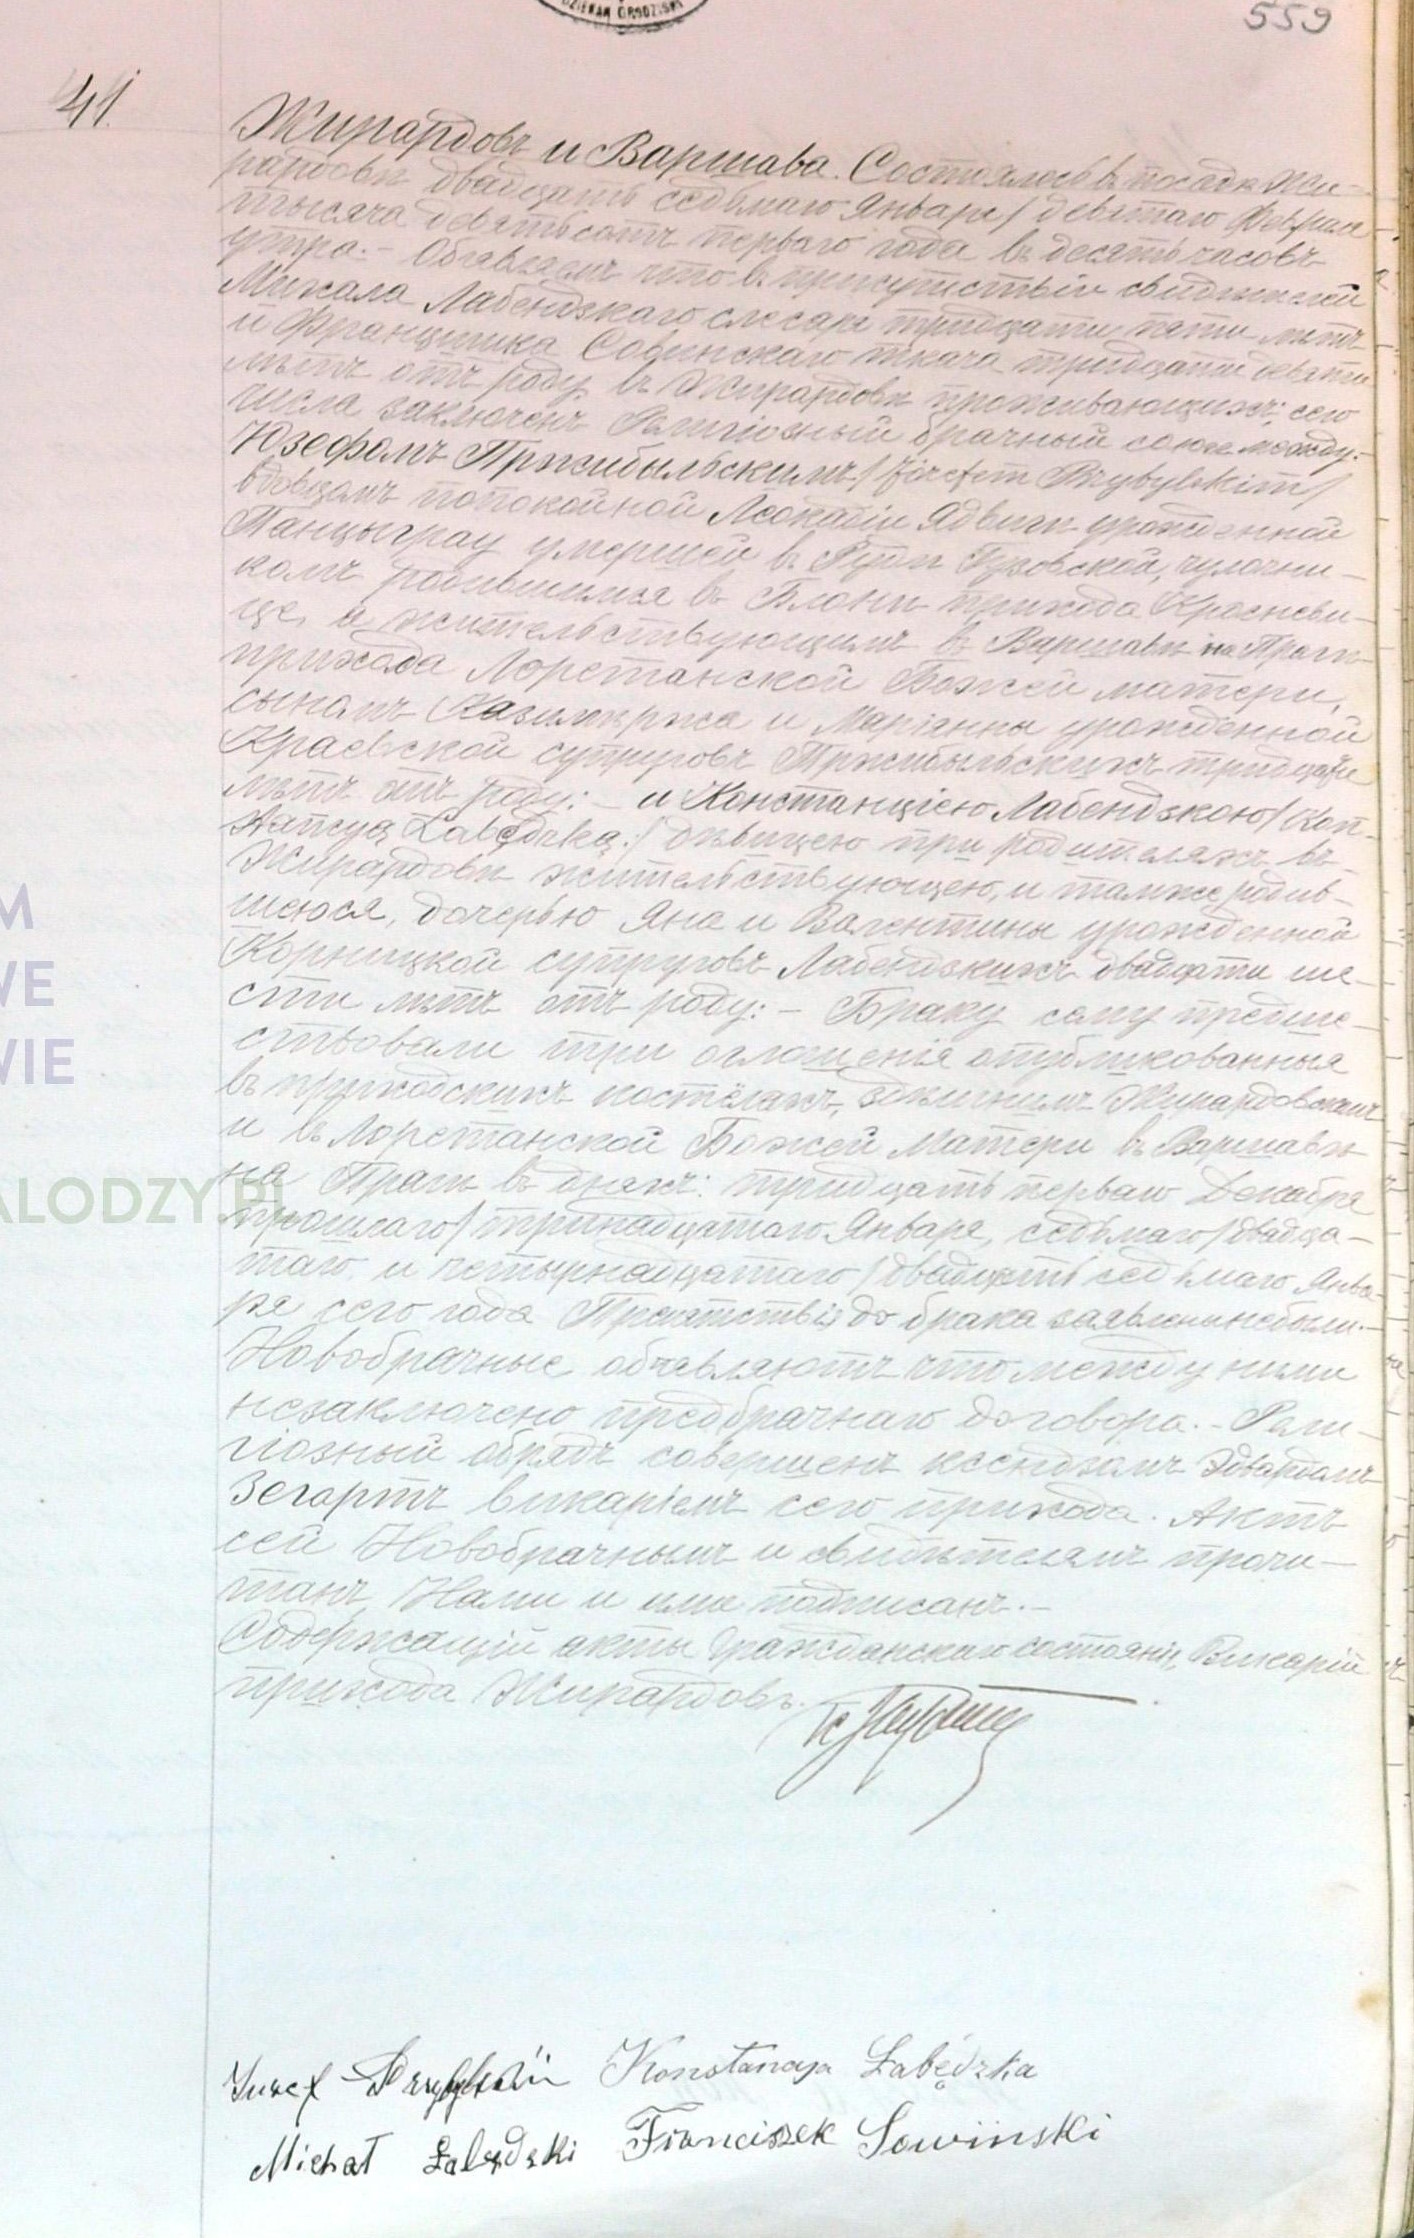 DZIEKAN GRODZISKI
559
41.
Жирардовъ и Варшава. Состоялось въ посадѣ Жи-
рардовѣ двадцать седьмаго Января / девятаго Февраля
тысяча девятьсотъ перваго года въ десять часовъ
утра. - Объявляемъ что въ присутствіи свидѣтелей
Михала Лабендзкаго слесаря тридцати пяти лѣтъ
и Францишка Совинскаго ткача тридцати девяти
лѣтъ отъ роду, въ Жирардовѣ проживающихъ; сего
числа заключенъ Религіозный брачный союзъ между:
Юзефомъ Пржибыльскимъ / Józefem Przybylskim /
вдовцомъ по покойной Леокадіи Ядвигѣ урожденной
умершей въ Рудѣ Гузовской, чулочни-
комъ родившимся въ Блони прихода
це, а жительствующимъ въ Варшавѣ на Прагѣ
прихода Лоретанской Божей Матери,
сыномъ Казимержа и Маріанны урожденной
Краевской супруговъ Пржибыльскихъ тридцати
лѣтъ отъ роду: - и Констанціею Лабендзкою / Kon-
stancyą Łabędzką / дѣвицею при родителяхъ въ
Жирардовѣ жительствующею, и тамже родив-
шеюся, дочерью Яна и Валентины урожденной
Корницкой супруговъ Лабендзкихъ двадцати ше-
сти лѣтъ отъ роду: - Браку сему предше-
ствовали три оглошенія опубликованныя
въ приходскихъ костёлахъ, здѣшнимъ Жирардовскимъ
и въ Лоретанской Божей Матери въ Варшавѣ
на Прагѣ въ дняхъ: тридцать перваго Декабря
прошлаго / тринадцатаго Января, седьмаго / двадца-
таго и четырнадцатаго / двадцать седьмаго Янва-
ря сего года Препятствія до брака заявлении небыли.-
Новобрачные объявляютъ что между ними
незаключено предбрачнаго договора. - Рели-
гіозный обрядъ совершенъ ксендзомъ Эдвардомъ
Зегартъ викаріемъ сего прихода. Актъ
сей Новобрачнымъ и свидѣтелямъ прочи-
танъ, Нами и ими подписанъ. -
Содержащій акты гражданскаго состоянія, Викарій
прихода Жирардовъ.
Józef Przybylski Konstancya Łabędzka
Michał Łabędzki Franciszek Sowiński
M
WE
WIE
ALODZY.PL